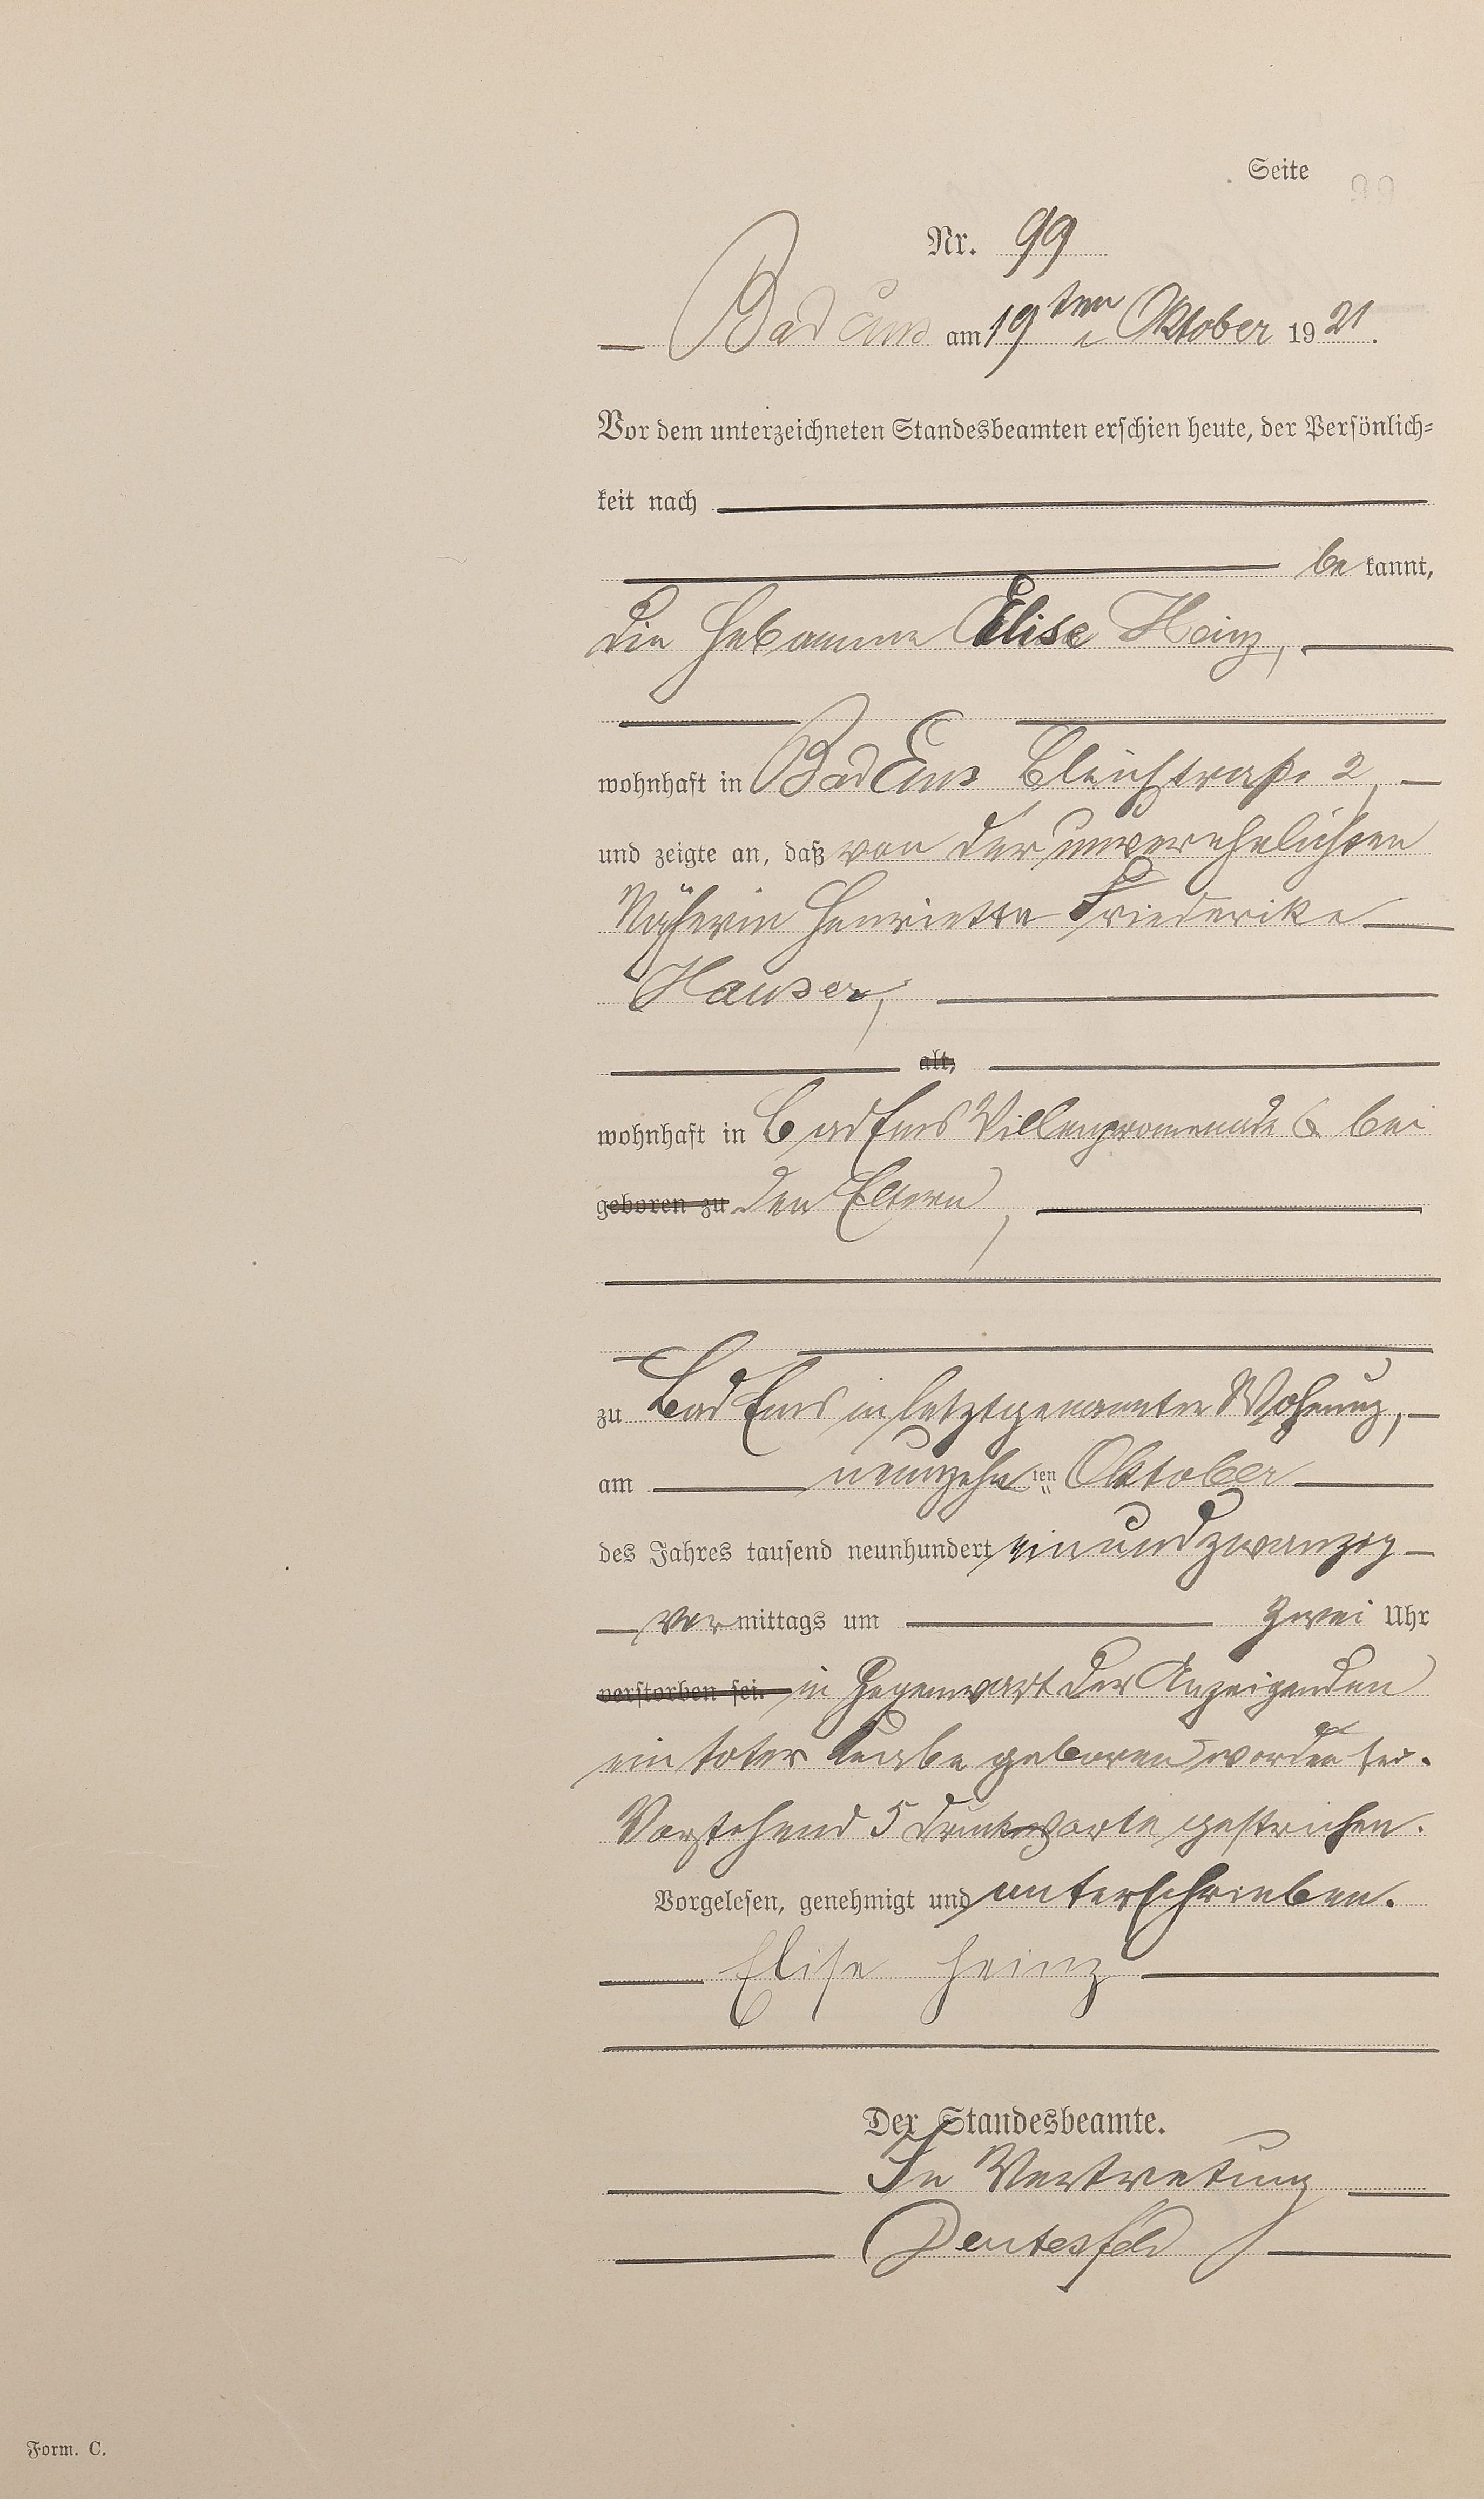 Seite
Nr. 99
Bad Ems am 19ten Oktober 1921.
Vor dem unterzeichneten Standesbeamten erschien heute, der Persönlich-
keit nach
be kannt,
die Hebamme Elise Heinz,
wohnhaft in Bad Ems Bleichstraße 2,
und zeigte an, daß von der unverehelichten
Näherin Henriette Friederike
Hauser,
alt,
wohnhaft in Bad Ems Villenpromenade 6 bei
geboren zu den Eltern,
zu Bad Ems in letztgenannter Wohnung,
am neunzehnten Oktober
des Jahres tausend neunhundert einundzwanzig
vormittags um zwei Uhr
verstorben sei. in Gegenwart der Anzeigenden
ein toter Knabe geboren worden sei.
Vorstehend 5 Druckworte gestrichen.
Vorgelesen, genehmigt und unterschrieben.
Elise Heinz
Der Standesbeamte.
In Vertretung
Form. C.